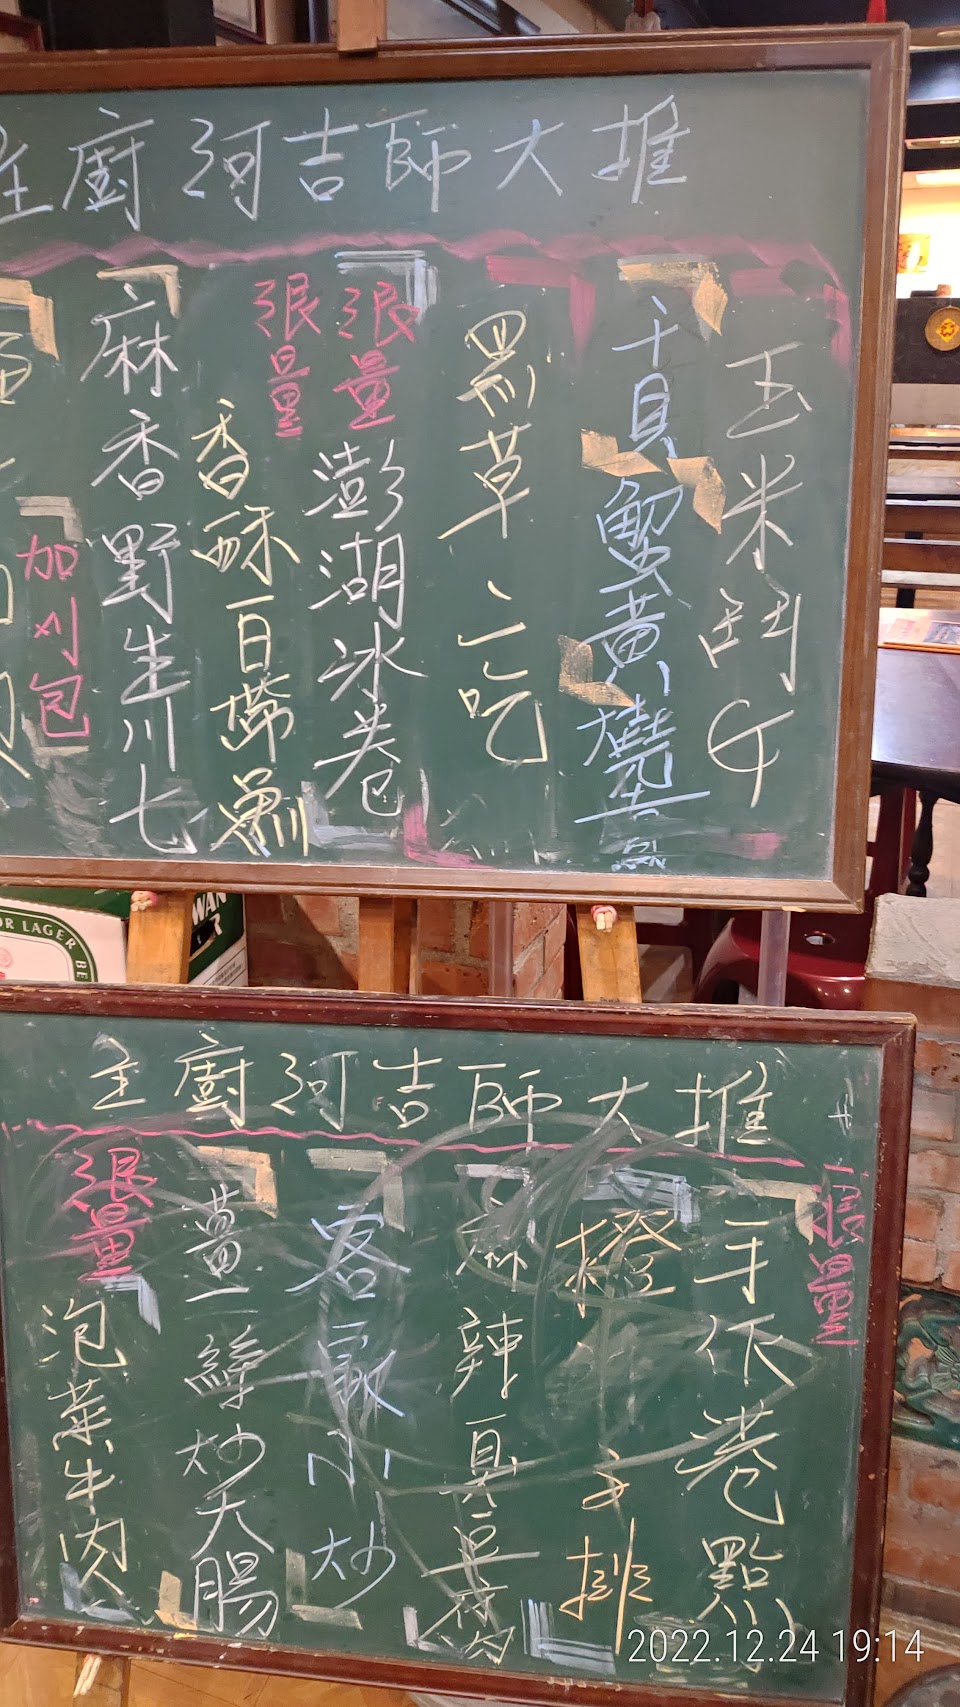 主廚河吉師大推
玉米鬥牛
干貝蟹黃燒
黑草二吃
限量
澎湖冰卷
限量
香酥百帶魚
麻香野生川七
加刈包
LAGER
主廚河吉師大推
限量
手作港點
橙子排
麻辣
客家小炒
薑絲炒大腸
限量
泡菜牛肉
2022.12.24 19:14